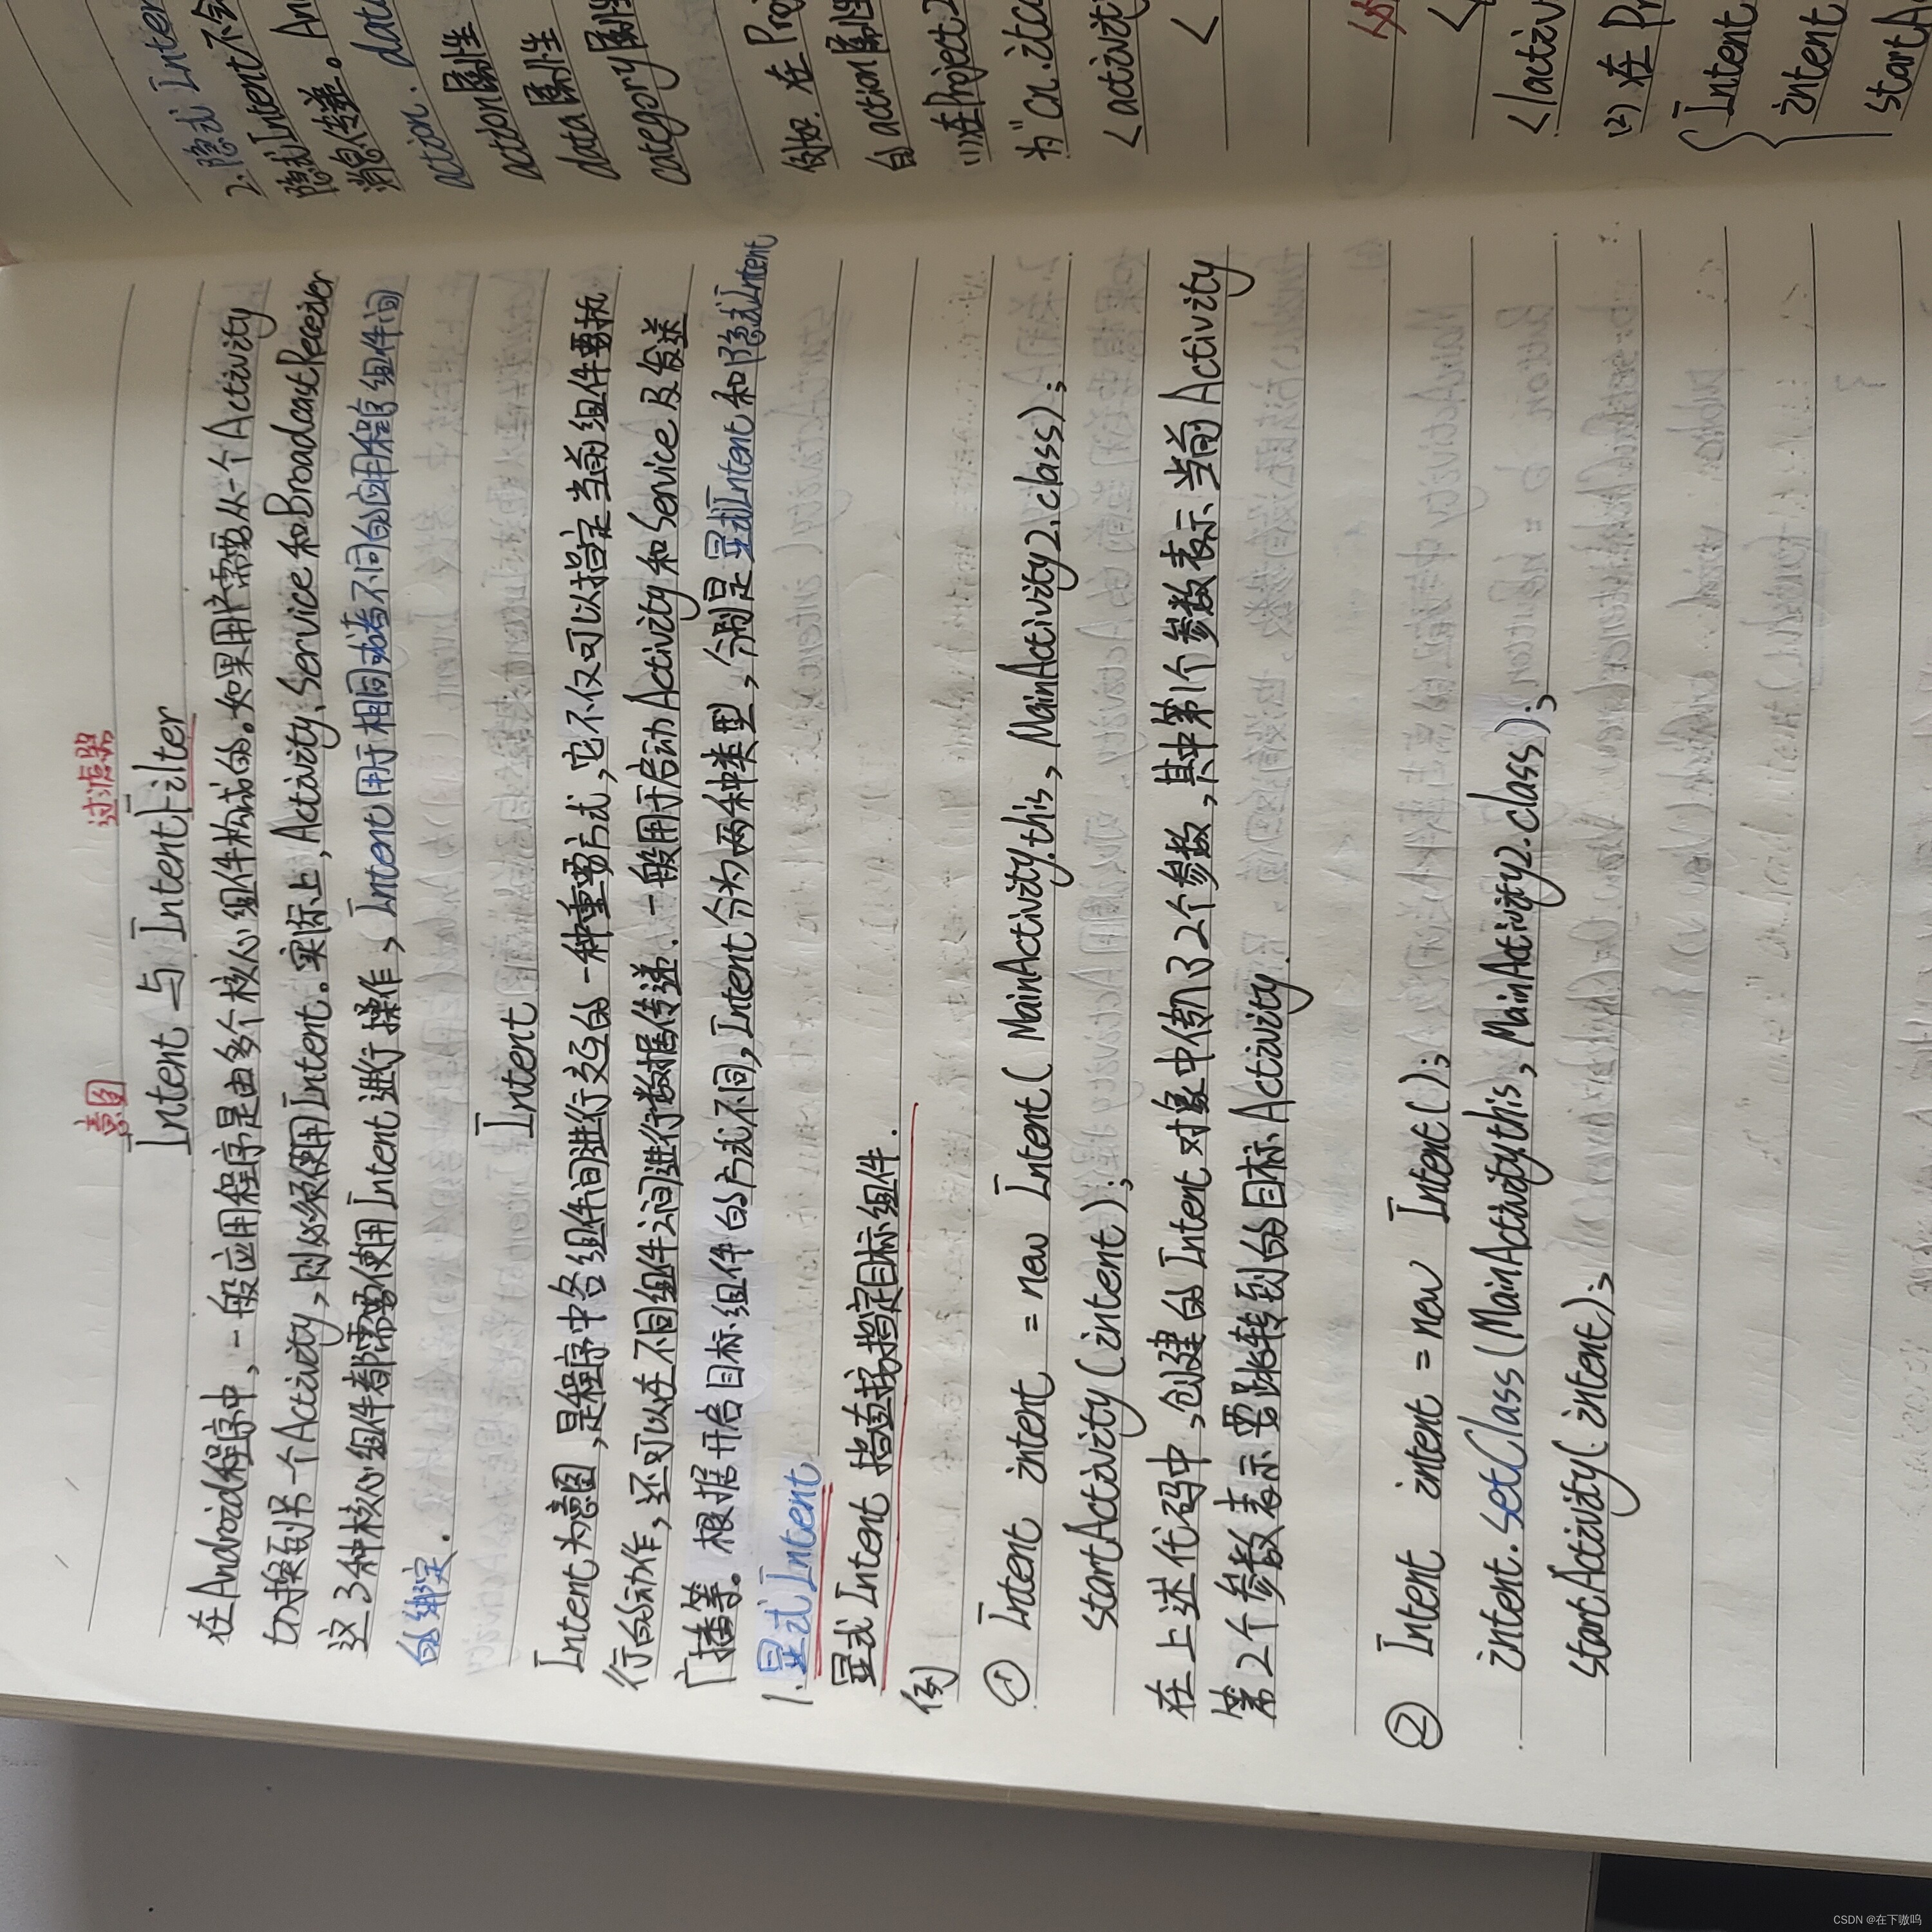 意图 过滤器
Intent 与 IntentFilter
在Android程序中,一般应用程序是由多个核心组件构成的。如果用户需要从一个Activity
切换到另一个Activity,则必须使用Intent。实际上,Activity、Service和BroadcastReceiver
这3种核心组件都需要使用Intent进行操作,Intent用于相同或者不同的应用程序组件间
的绑定.
Intent
Intent为意图,是程序中各组件间进行交互的一种重要方式,它不仅可以指定当前组件要执
行的动作,还可以在不同组件之间进行数据传递.一般用于启动Activity和Service及发送
广播等。根据开启目标组件的方式不同,Intent分为两种类型,分别是显式Intent和隐式Intent
1.显式Intent
显式Intent 指直接指定目标组件.
例
① Intent intent = new Intent(MainActivity.this, MainActivity2.class);
startActivity(intent);
在上述代码中,创建的Intent对象中传入了2个参数,其中第1个参数表示当前Activity
第2个参数表示要跳转到的目标Activity.
② Intent intent = new Intent();
intent.setClass(MainActivity.this, MainActivity2.class);
startActivity(intent);
隐式Inten
2.隐式Intent不会
隐式Intent
消息传递。An
action、data
action属性
data属性
category属性
例如:在Proj
的action属性
(1)在Project2
为"cn.itca
<activit
<
<
</activ
(2)在Pr
Intent
intent
startA
CSDN @在下嗷呜